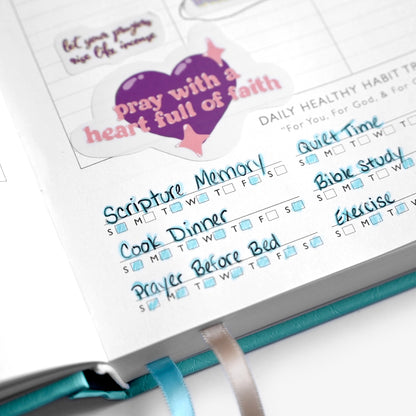 let your prayers
rise like incense
pray with a
heart full of faith
DAILY HEALTHY HABIT TR
"For You, For God, & For
Scripture Memory
S M T W T F S
Cook Dinner
S M T W T F S
Prayer Before Bed
S M T W T F S
Quiet Time
S M T W T
Bible Study
S M T W T
Exercise
S M T W